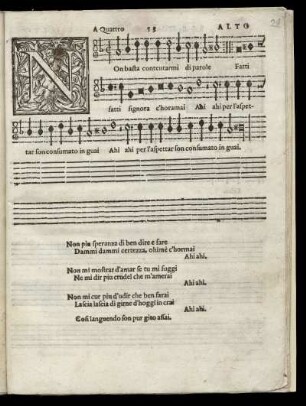 A Quatro 15 ALTO
N
On basta contentarmi di parole Fatti
fatti signora c'horamai Ahi ahi per l'aspet-
tar son consumato in guai Ahi ahi per l'aspettar son consumato in guai.
Non piu speranza di ben dire e fare
Dammi dammi certezza, ohime c'hormai
Ahi ahi.
Non mi mostrar d'amar se tu mi fuggi
Ne mi dir piu crudel che m'amerai
Ahi ahi.
Non mi cur piu d'udir che ben farai
Lascia lascia di girne d'hoggi in crai
Ahi ahi.
Cosi languendo son pur gito assai.